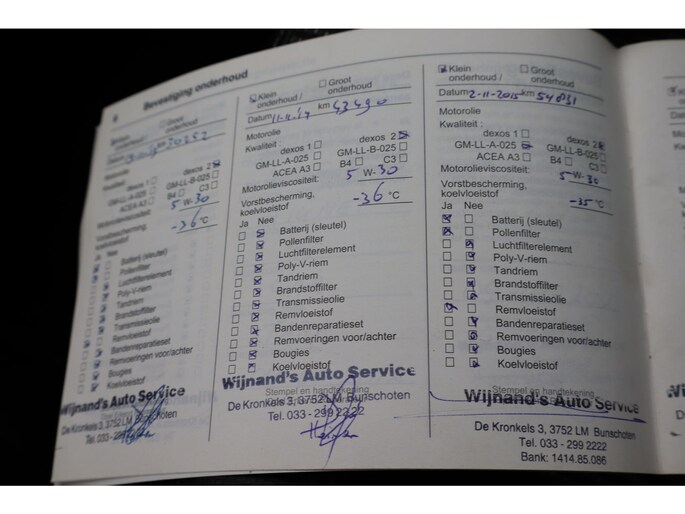 6 Bevestiging onderhoud
Klein onderhoud /
Groot onderhoud
Datum km 30252
Motorolie
Kwaliteit:
dexos 1 dexos 2
GM-LL-A-025 GM-LL-B-025
ACEA A3 B4 C3
Motorolieviscositeit: 5 W-30
Vorstbescherming,
koelvloeistof -36 °C
Ja Nee
Batterij (sleutel)
Pollenfilter
Luchtfilterelement
Poly-V-riem
Tandriem
Brandstoffilter
Transmissieolie
Remvloeistof
Bandenreparatieset
Remvoeringen voor/achter
Bougies
Koelvloeistof
Wijnand's Auto Service
De Kronkels 3, 3752 LM Bunschoten
Tel. 033 - 299 2222
Klein onderhoud /
Groot onderhoud
Datum km 43490
Motorolie
Kwaliteit :
dexos 1 dexos 2
GM-LL-A-025 GM-LL-B-025
ACEA A3 B4 C3
Motorolieviscositeit: 5 W-30
Vorstbescherming,
koelvloeistof -36 °C
Ja Nee
Batterij (sleutel)
Pollenfilter
Luchtfilterelement
Poly-V-riem
Tandriem
Brandstoffilter
Transmissieolie
Remvloeistof
Bandenreparatieset
Remvoeringen voor/achter
Bougies
Koelvloeistof
Stempel en handtekening
Wijnand's Auto Service
De Kronkels 3, 3752 LM Bunschoten
Tel. 033 - 299 2222
Klein onderhoud /
Groot onderhoud
Datum 2-11-2015 km 54831
Motorolie
Kwaliteit :
dexos 1 dexos 2
GM-LL-A-025 GM-LL-B-025
ACEA A3 B4 C3
Motorolieviscositeit: 5 W-30
Vorstbescherming,
koelvloeistof °C
Ja Nee
Batterij (sleutel)
Pollenfilter
Luchtfilterelement
Poly-V-riem
Tandriem
Brandstoffilter
Transmissieolie
Remvloeistof
Bandenreparatieset
Remvoeringen voor/achter
Bougies
Koelvloeistof
Stempel en handtekening
Wijnand's Auto Service
De Kronkels 3, 3752 LM Bunschoten
Tel. 033 - 299 2222
Bank: 1414.85.086